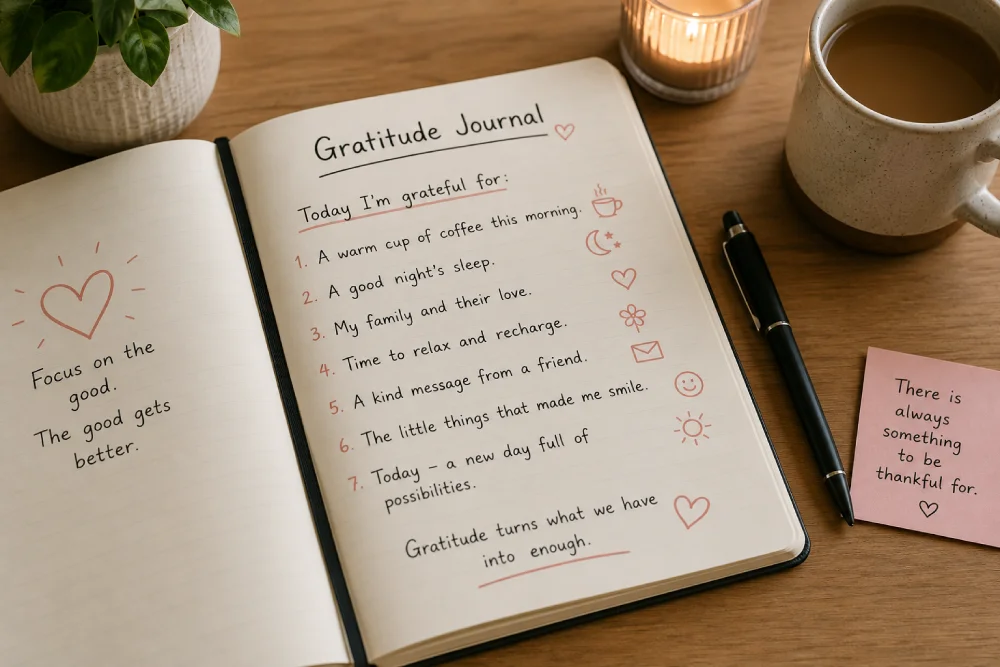 Focus on the
good.
The good gets
better.
Gratitude Journal
Today I'm grateful for:
1. A warm cup of coffee this morning.
2. A good night's sleep.
3. My family and their love.
4. Time to relax and recharge.
5. A kind message from a friend.
6. The little things that made me smile.
7. Today – a new day full of
possibilities.
Gratitude turns what we have
into enough.
There is
always
something
to be
thankful for.